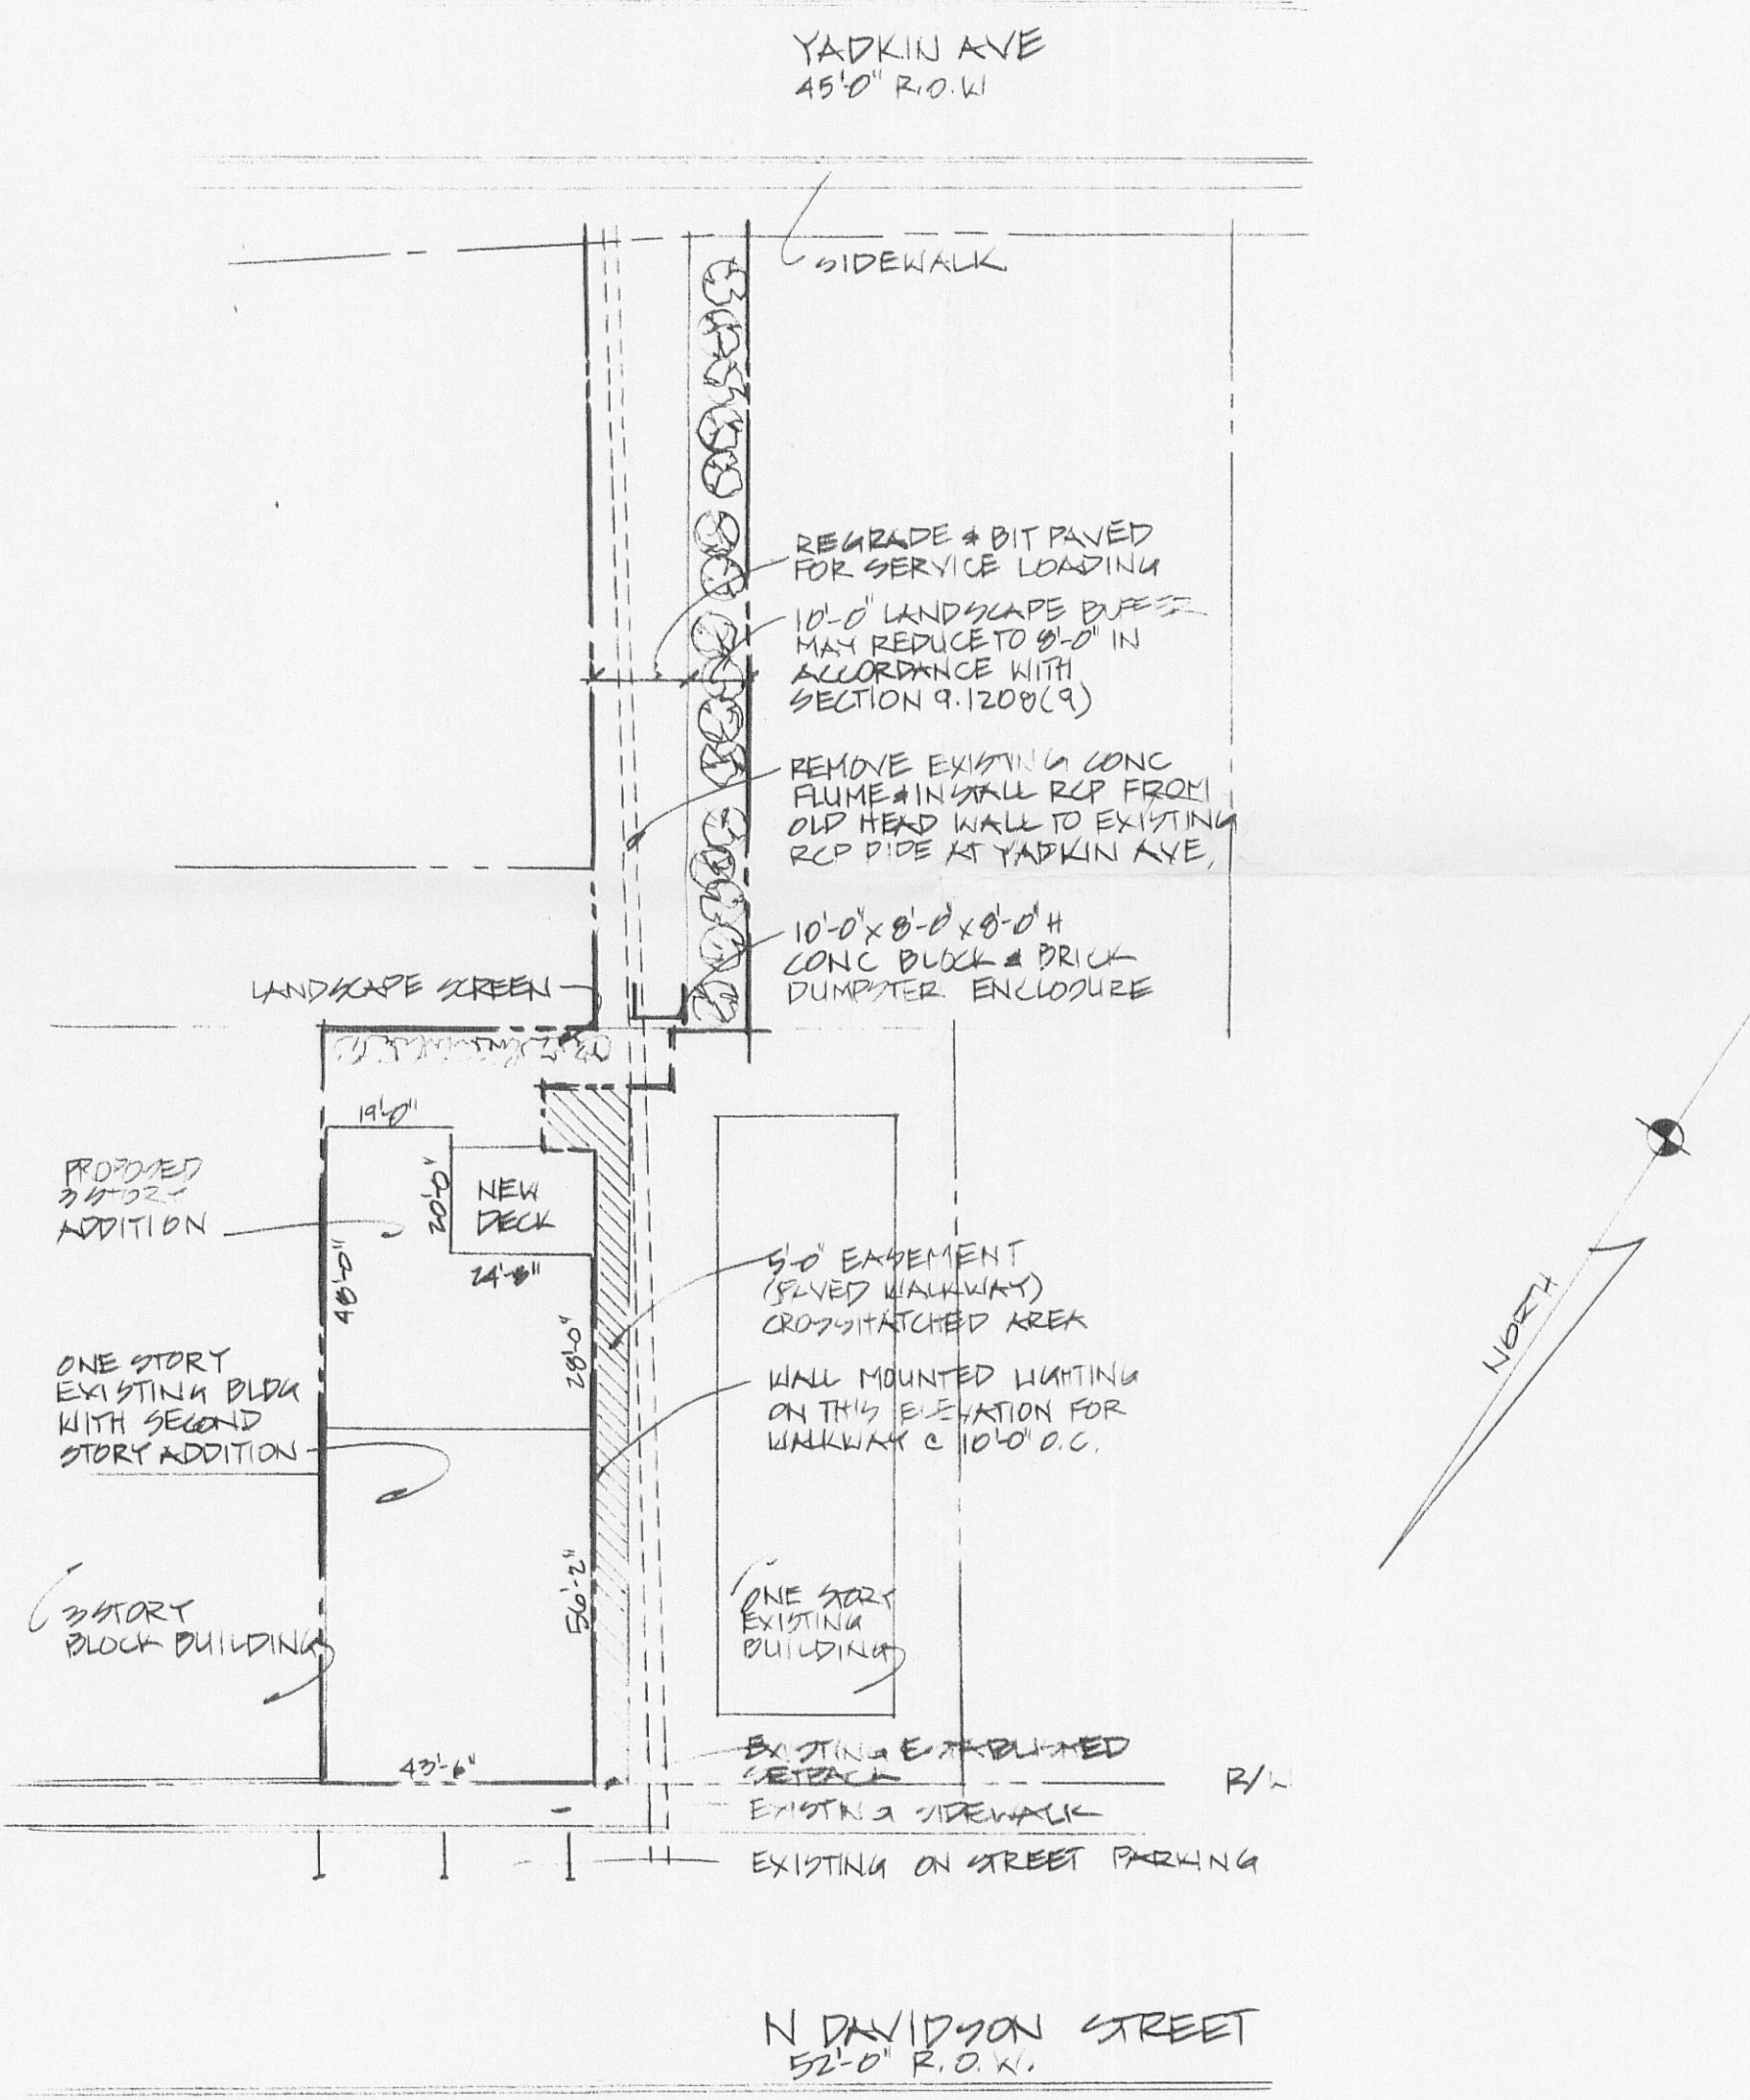 YADKIN AVE
45'-0" R.O.W
SIDEWALK
REGRADE & BIT PAVED
FOR SERVICE LOADING
10'-0" LANDSCAPE BUFFER
MAY REDUCE TO 8'-0" IN
ACCORDANCE WITH
SECTION 9.1208(9)
REMOVE EXISTING CONC
FLUME & INSTALL RCP FROM
OLD HEAD WALL TO EXISTING
RCP PIPE AT YADKIN AVE.
10'-0" x 8'-0" x 8'-0" H
CONC BLOCK & BRICK
DUMPSTER ENCLOSURE
LANDSCAPE SCREEN
19'-0"
PROPOSED
3 STORY
ADDITION
20'-0"
NEW
DECK
24'-6"
48'-0"
28'-0"
5'-0" EASEMENT
(PAVED WALKWAY)
CROSSHATCHED AREA
NORTH
ONE STORY
EXISTING BLDG
WITH SECOND
STORY ADDITION
WALL MOUNTED LIGHTING
ON THIS ELEVATION FOR
WALKWAY @ 10'-0" O.C.
56'-2"
3 STORY
BLOCK BUILDING
ONE STORY
EXISTING
BUILDING
43'-6"
EXISTING ESTABLISHED
SETBACK
R/W
EXISTING SIDEWALK
EXISTING ON STREET PARKING
N DAVIDSON STREET
52'-0" R.O.W.